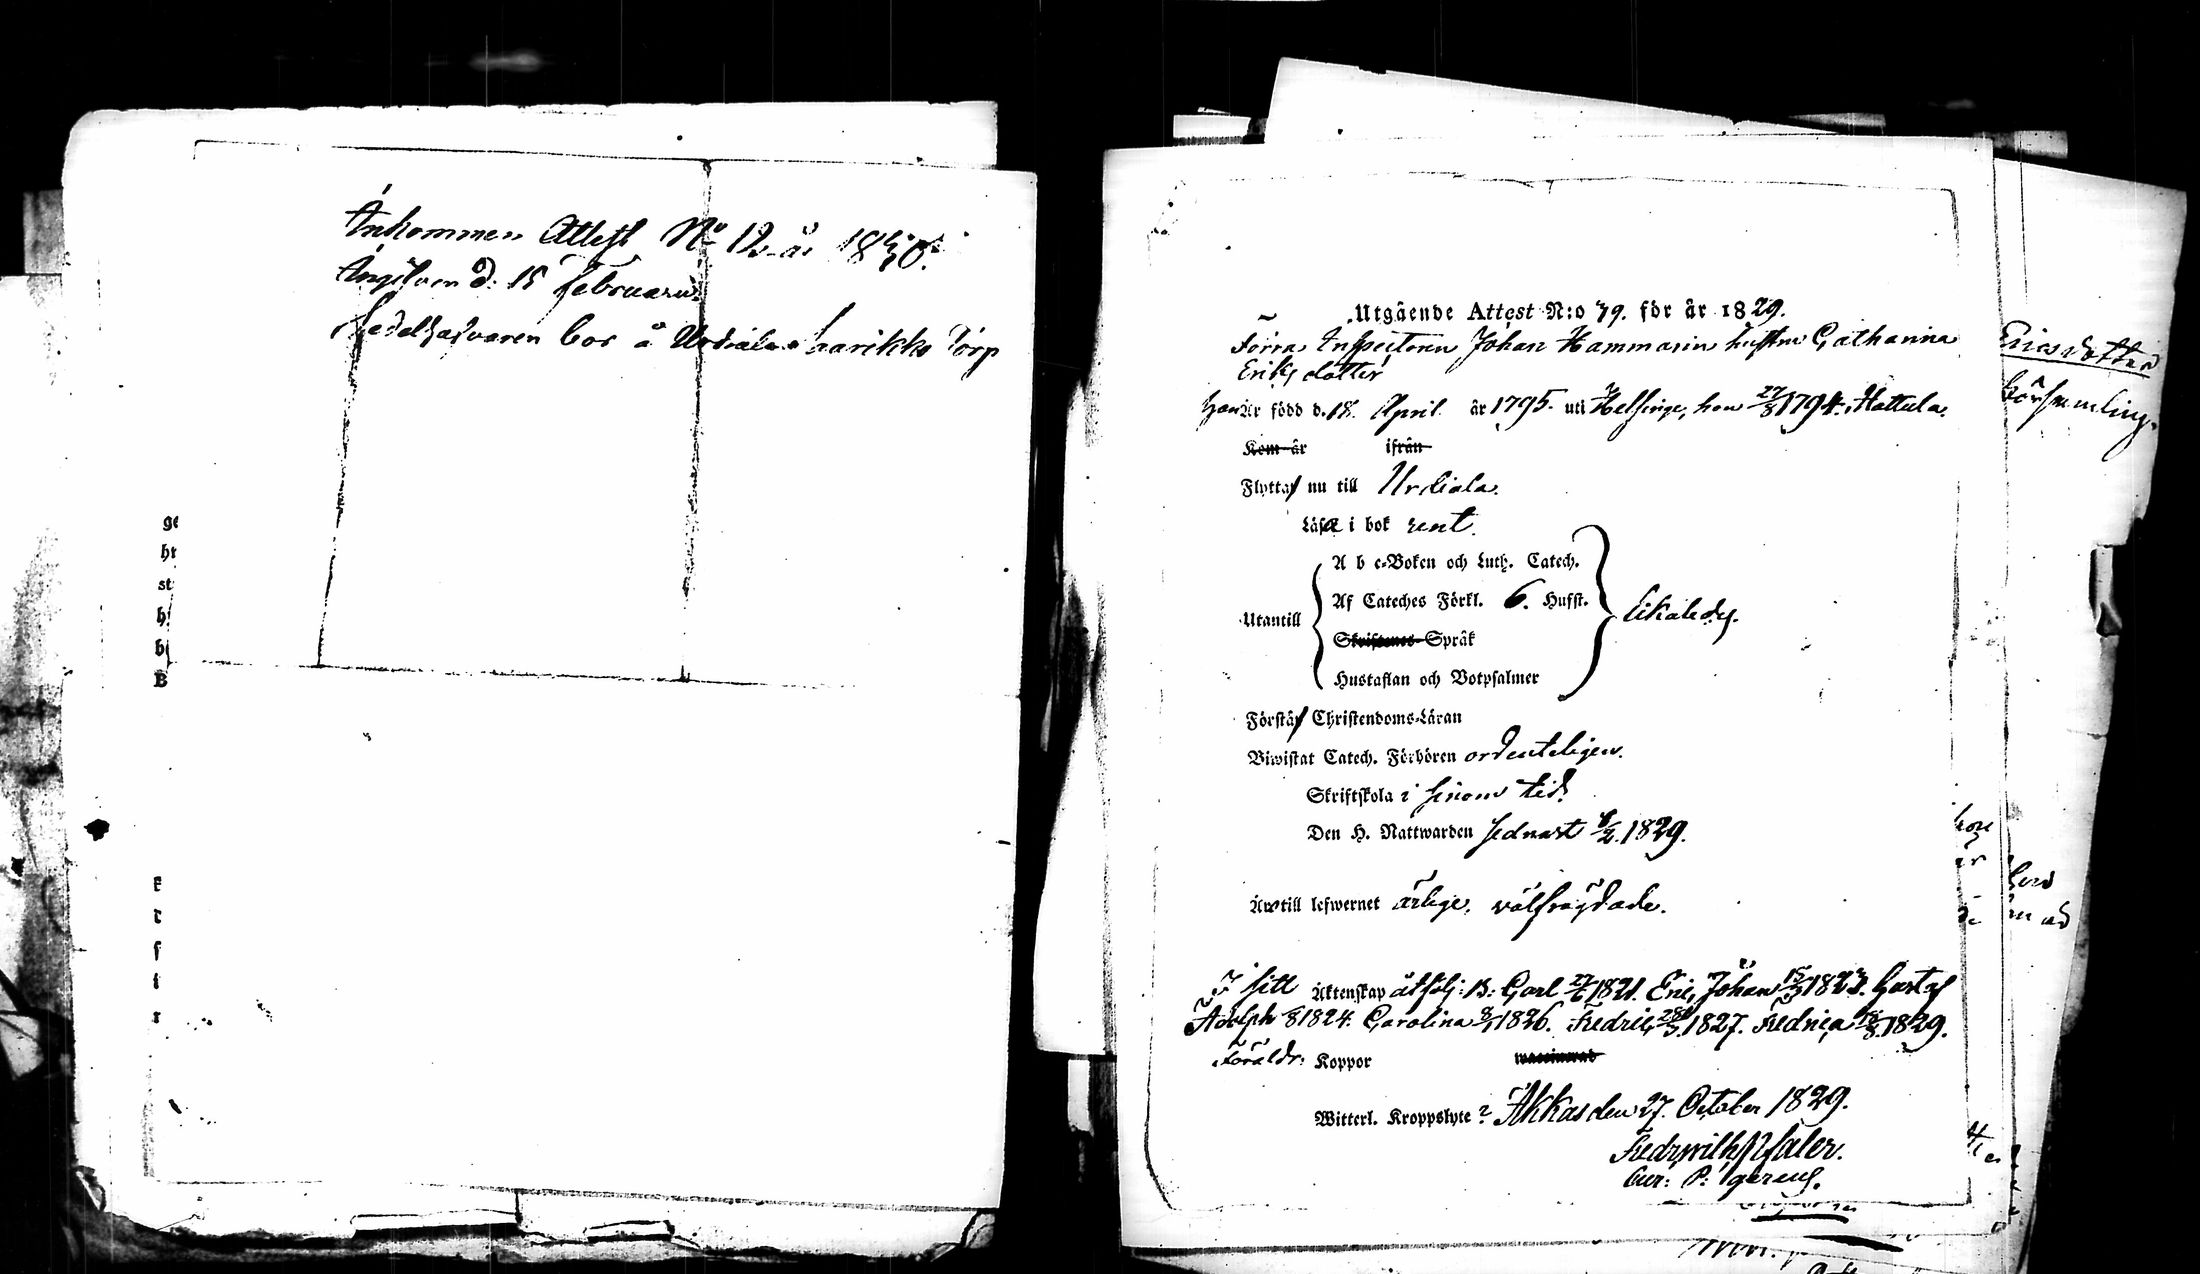 Ankommen Attest No 12 år 1830.
Angifven d. 15 februarii
Sedelhafvaren bor å Urdiala Saarikko Torp
ge
ht
st
h
b
B
k
r
f
t
r
Utgående Attest N:o 79. för år 1829.
Förra Inspectoren Johan Hammarin hustru Catharina
Eriksdotter
han Är född d. 18. April år 1795. uti Helsinge, hon 27/8 1794. Hattula.
Kom år ifrån
Flytta nu till Urdiala.
Läsa i bok rent.
A b c-Boken och Luth. Catech.
Af Cateches Förkl. 6. Hufst.
Utantill likaledes.
Skriftenes Språk
Hustaflan och Botpsalmer
Förstå Christendoms-Läran
Biwistat Catech. Förhören ordenteligen.
Skriftskola i sinom tid.
Den H. Nattwarden sednast 1829.
Äro till lefwernet ärlige, välfrägdade.
I sitt Äktenskap åtfölj: B: Carl 1821. Eric Johan 15/3 1823. Gustaf
Adolph 8 1824. Carolina 1826. Fredric 28/3 1827. Fredrica 1829.
Föräldr: Koppor waccinerad
Witterl. Kroppslyte? Akkas den 27. October 1829.
Fredr Wilh Pfaler.
Cur: P: gerens.
Ericsdotter
Församling.